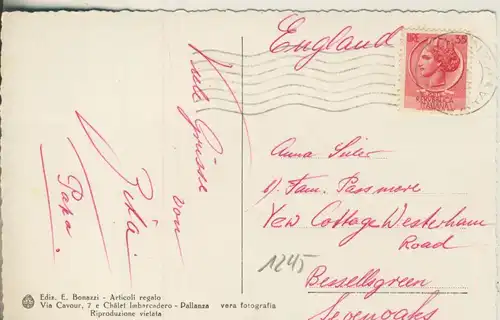 England
Viele Grüsse
von
Papa.
Anna Suter
b/ Fam. Passmore
Yew Cottage Westerham
Road
Bessellsgreen
Sevenoaks
1245
Ediz. E. Bonazzi - Articoli regalo
Via Cavour, 7 e Châlet Imbarcadero - Pallanza
Riproduzione vietata
vera fotografia
REPVBBLICA
ITALIANA